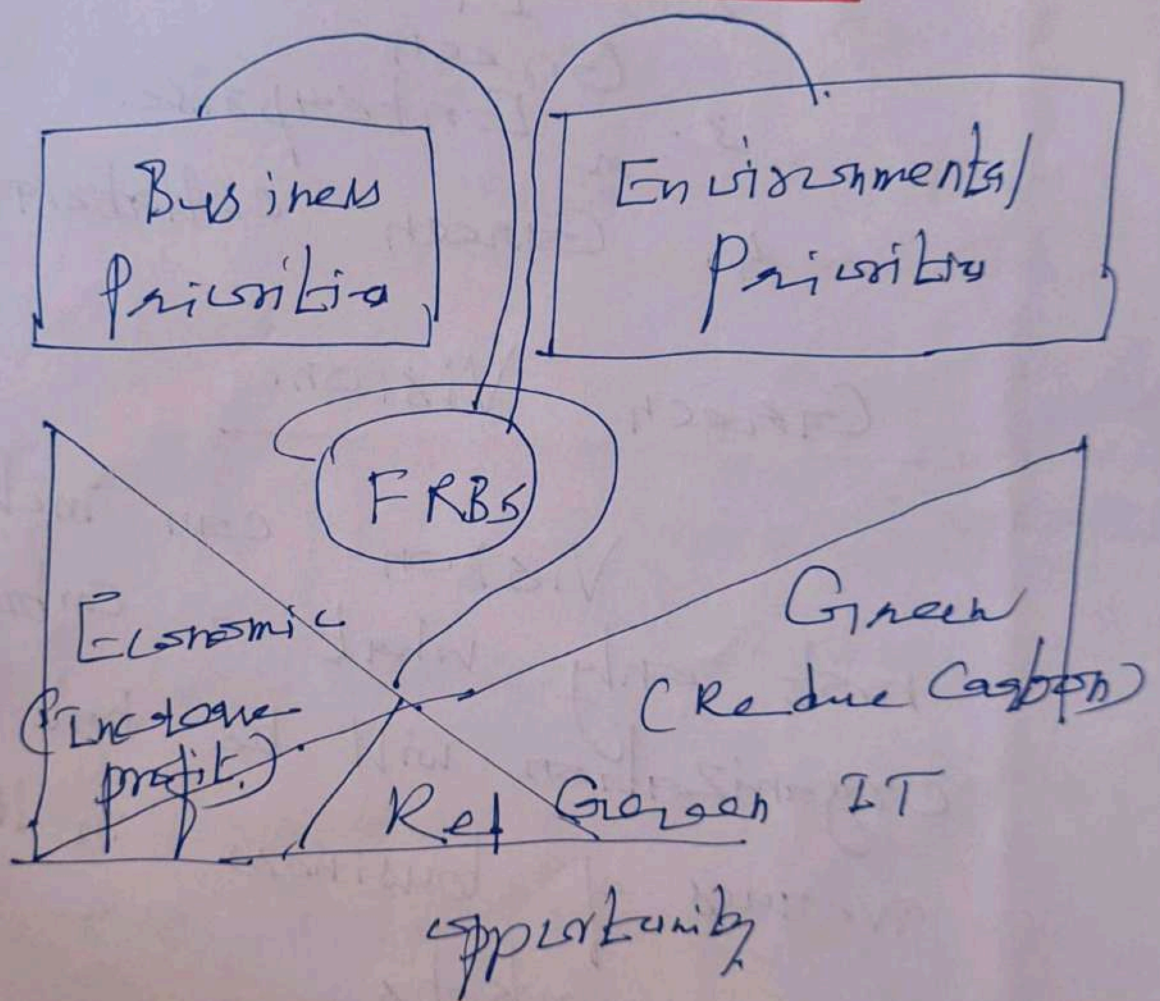 Business
Priorities
Environmental
Priorities
FRBS
Economic
(Increase
profit)
Green
(Reduce Carbon)
Ret Green IT
opportunity